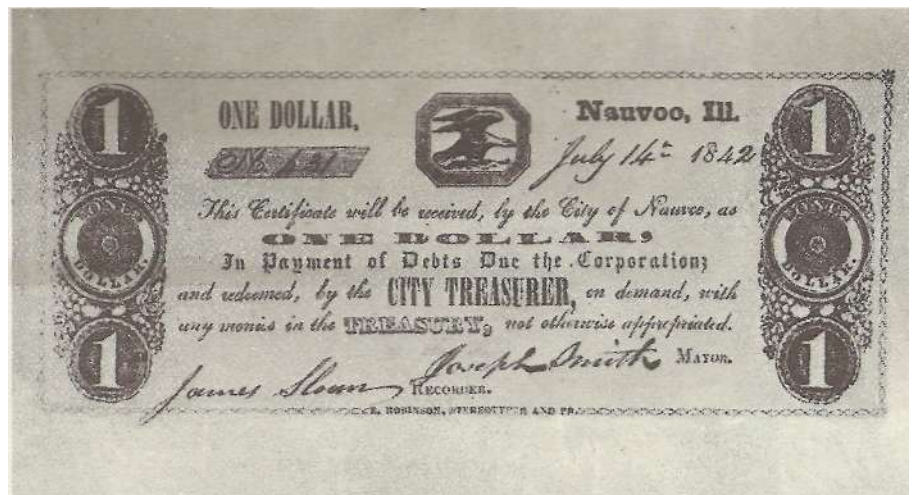 1 1
ONE DOLLAR, Nauvoo, Ill.
No. July 14th 1842
This Certificate will be received, by the City of Nauvoo, as
ONE DOLLAR,
In Payment of Debts Due the Corporation;
and redeemed, by the CITY TREASURER, on demand, with
any monies in the TREASURY, not otherwise appropriated.
ONE DOLLAR.
ONE DOLLAR.
1 1
Joseph Smith MAYOR.
James Sloan RECORDER.
E. ROBINSON, STEREOTYPER AND PR.